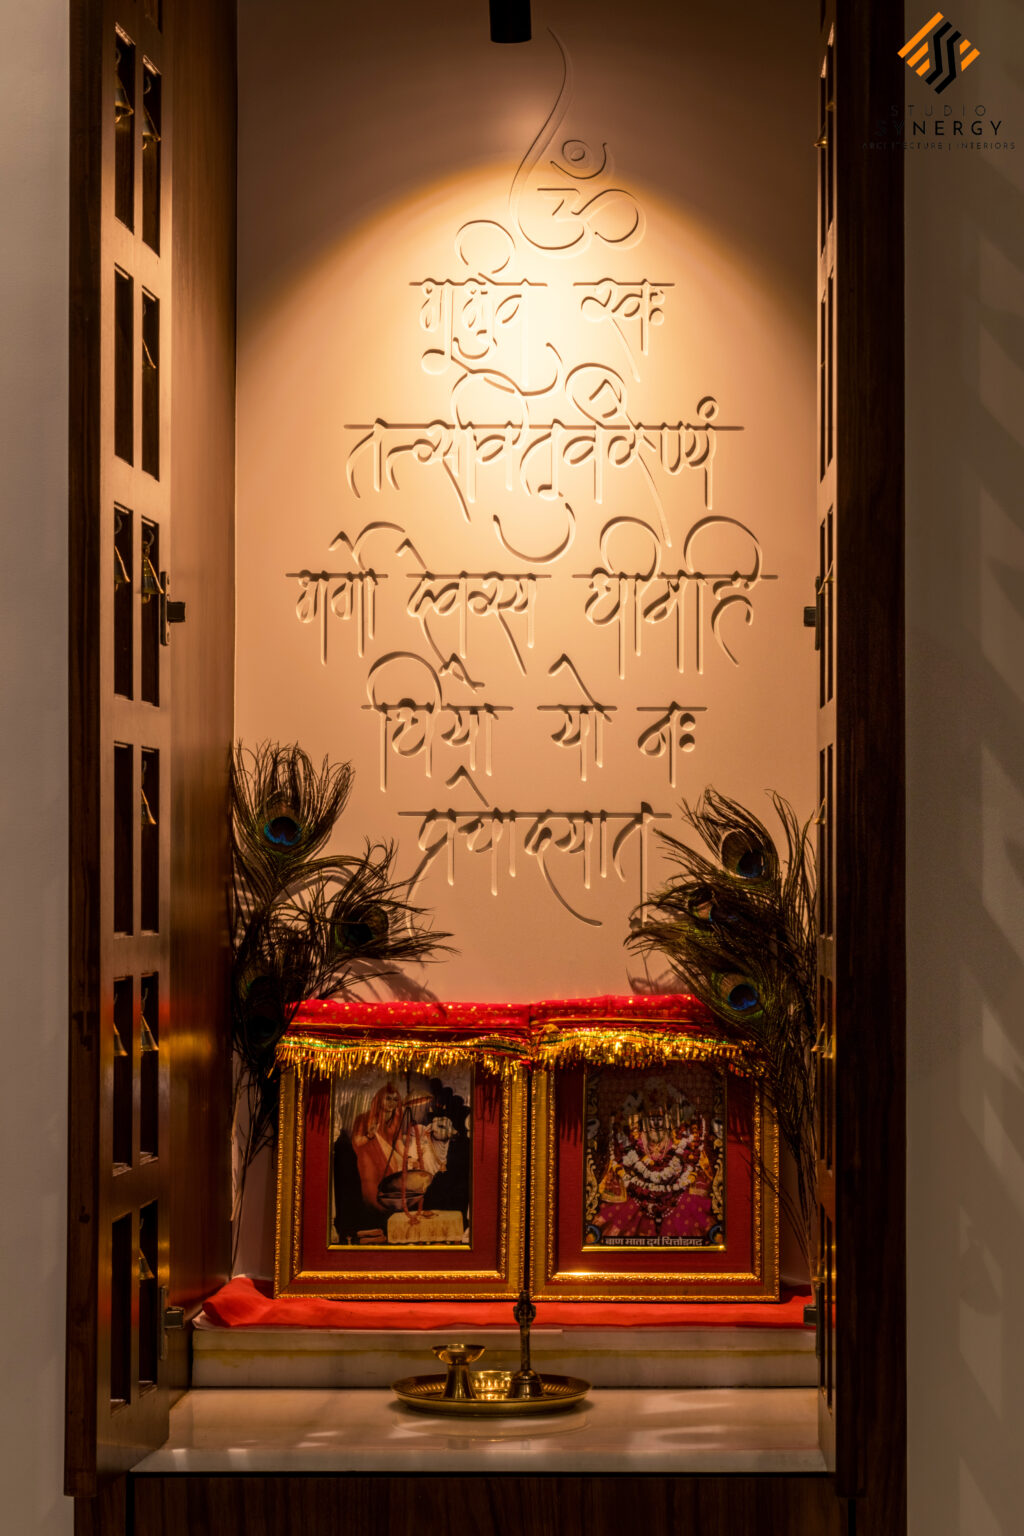 STUDIO
SYNERGY
ARCHITECTURE | INTERIORS
ॐ
भूर्भुव स्वः
तत्सवितुर्वरेण्यं
भर्गो देवस्य धीमहि
धियो यो नः
प्रचोदयात्
बाण माता दुर्ग चित्तौडगढ